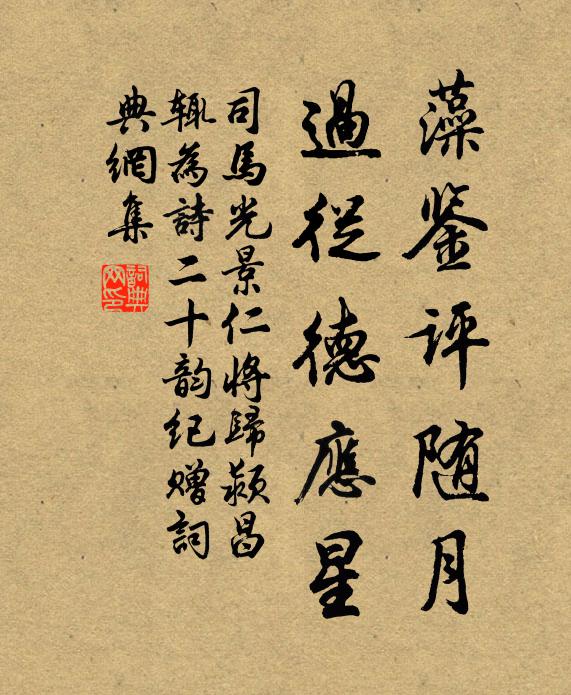 藻鉴评随月
過從德應星
司馬光景仁將歸颍昌
輒為詩二十韵纪赠詞
典網集
詞典
网印